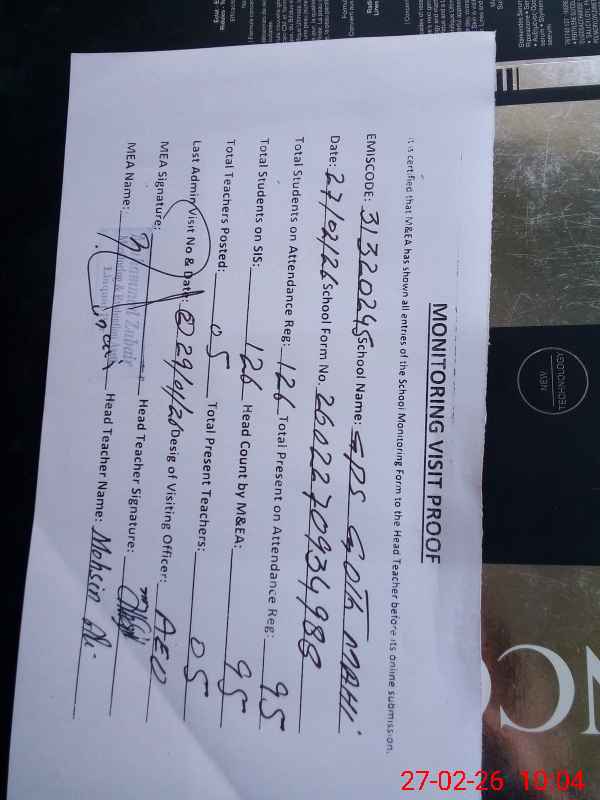 MONITORING VISIT PROOF
It is certified that M&EA has shown all entries of the School Monitoring Form to the Head Teacher before its online submission.
EMISCODE: 31320245 School Name: GPS GOTH MAHI
Date: 27/02/26 School Form No. 260227093498G
Total Students on Attendance Reg: 126 Total Present on Attendance Reg: 95
Total Students on SIS: 126 Head Count by M&EA: 95
Total Teachers Posted: 05 Total Present Teachers: 05
Last Admin Visit No & Date: 29/01/26 Desig of Visiting Officer: AEO
MEA Signature: Head Teacher Signature:
MEA Name: Head Teacher Name: Mohsin Ali
NEW
TECHNOLOGY
NC
27-02-26 10:04